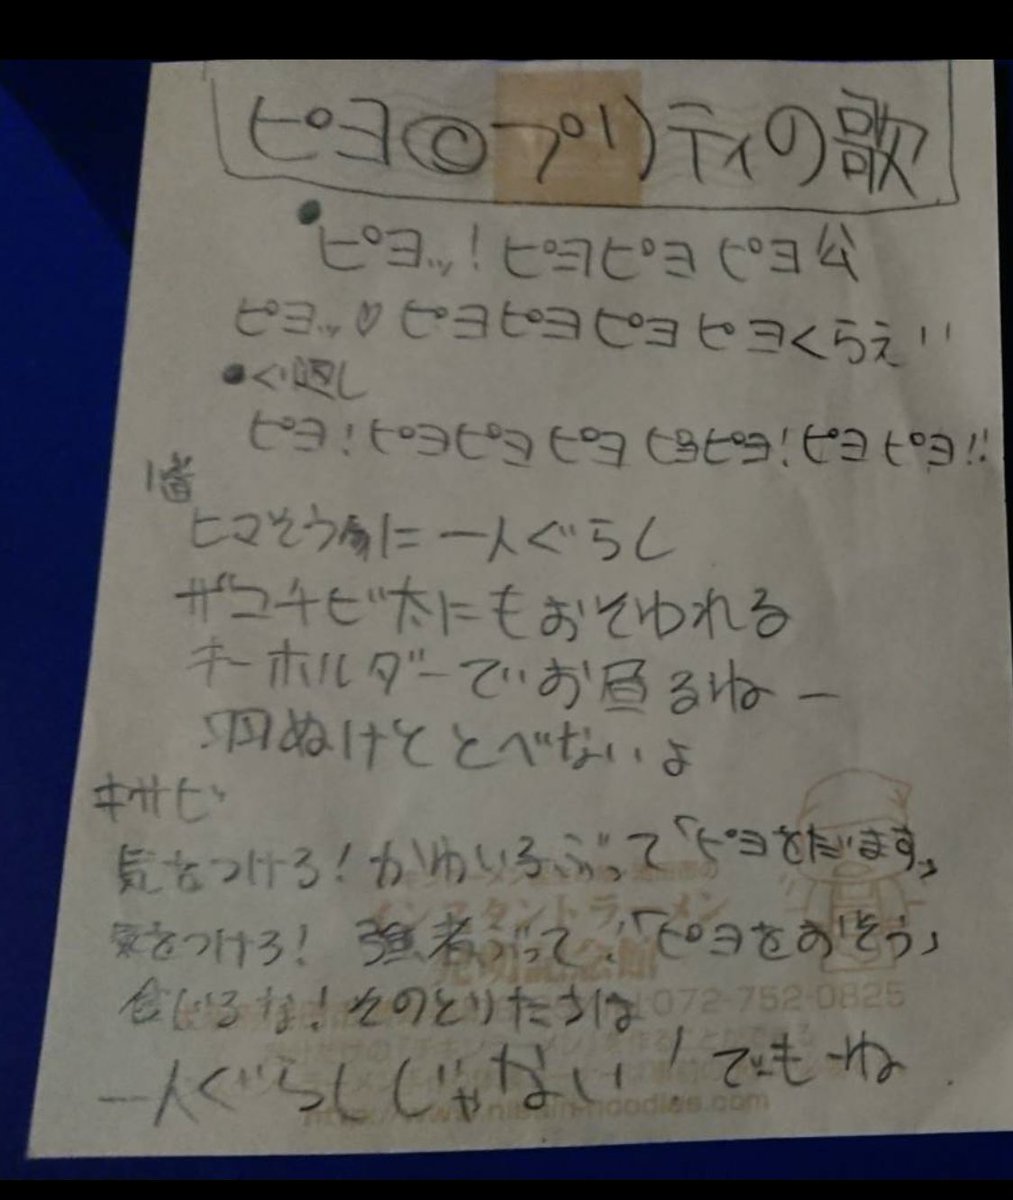 ピヨ©プリティの歌
ピヨッ!ピヨピヨ ピヨ公
ピヨッ♡ピヨピヨピヨ ピヨくらえ!!
くり返し
ピヨ!ピヨピヨ ピヨ ピヨピヨ!ピヨ ピヨ!!
1番
ヒマそうに一人ぐらし
ザコチビ太にもおそわれる
キーホルダーでいお昼るねー
羽ぬけてとべないよ
サビ
気をつけろ!かわいろぶって「ピヨをだいます」
気をつけろ!強者ぶって「ピヨをおそう」
インスタントラーメン
発明記念館
そのとりたちは
072-752-0825
一人ぐらしじゃない!でもーね